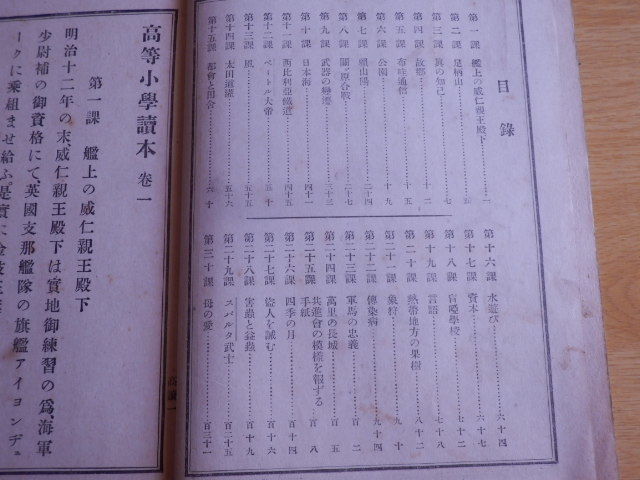 目錄
第一課 艦上の威仁親王殿下 一
第二課 足柄山 五
第三課 眞の知己 七
第四課 故鄕 十二
第五課 布哇通信 十五
第六課 公園 十九
第七課 賴山陽 二十四
第八課 關が原合戰 二十七
第九課 武器の變遷 三十三
第十課 日本海 四十一
第十一課 西比利亞鐵道 四十五
第十二課 ペートル大帝 五十
第十三課 風 五十五
第十四課 太田道灌 五十六
第十五課 都會と田舍 六十
第十六課 水遊び 六十四
第十七課 資本 六十七
第十八課 盲啞學校 七十四
第十九課 言語 七十八
第二十課 熱帶地方の果樹 八十二
第二十一課 象狩 九十
第二十二課 傳染病 九十四
第二十三課 軍馬の忠義 百二
第二十四課 萬里の長城 百五
第二十五課 共進會の模樣を報ずる手紙 百八
第二十六課 四季の月 百十四
第二十七課 盜人を誡む 百十六
第二十八課 害蟲と益蟲 百十九
第二十九課 スパルタ武士 百二十五
第三十課 母の愛 百三十一
高讀一
高等小學讀本 卷一
第一課 艦上の威仁親王殿下
明治十二年の末、威仁親王殿下は實地御練習の爲、海軍
少尉補の御資格にて、英國支那艦隊の旗艦アイヨンデュ
ークに乘組ませ給ふ。是實に金枝玉葉